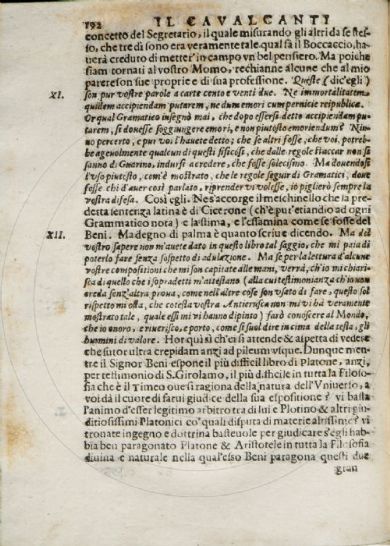 192 IL CAVALCANTI
concetto del Segretario, il quale misurando gli altri da se stes-
so, che tre dì sono era veramente tale qual fà il Boccaccio, ha-
uerà creduto di metter' in campo vn bel pensiero. Ma poiche
siam tornati al vostro Momo, rechianne alcune che al mio
parere son sue proprie e di sua professione. Queste (dic'egli)
XI. son pur vostre parole a carte cento e venti due. Ne immortalitatem
quidem accipiendam putarem, ne dum emori cum pernicie reipublicæ.
Or qual Gramatico insegnò mai, che dopo essersi detto accipiendam pu-
tarem, si douesse soggiungere emori, e non piutosto emoriendum? Niu-
no per certo, e pur voi l'hauete detto; che se altri fosse, che voi, potreb-
be ageuolmente qualcun di questi fisicosi, che dalle regole staccar non si
sanno di Guarino, indursi a credere, che fosse solecismo. Ma douendosi
l'vso piutosto, com'è mostrato, che le regole seguir di Gramatici, doue
fosse chi d'auer così parlato, riprender vi volesse, io piglierò sempre la
vostra difesa. Così egli. Nes'accorge il meschinello che la pre-
detta sentenza latina è di Cicerone (ch'è pur'etiandio ad ogni
Grammatico nota) e la stima, e l'essamina come se fosse del
XII. Beni. Ma degno di palma è quanto scriue dicendo. Ma del
vostro sapere non m'auete dato in questo libro tal saggio, che mi paia di
poterlo fare senza sospetto di adulazione. Ma se per la lettura d'alcune
vostre composizioni che mi son capitate alle mani, verrà, ch'io mi chiari-
sca di quello che i sopradetti m'attestano (alla cui testimonianza ch'io non
creda senz'altra proua, come nell'altre cose son vsato di fare, questo sol
rispetto mi osta, che cotesta vostra Anticrusca non mi vi ha veramente
mostrato tale, quale essi mi vi hanno dipinto) farò conoscere al Mondo,
che io onoro, e riuerisco, e porto, come si suol dire in cima della testa, gli
huomini di valore. Hor quì sì ch'ei si attende & aspetta di vedere
che sutor ultra crepidam anzi ad pileum vsque. Dunque men-
tre il Signor Beni espone il più difficil libro di Platone, anzi,
per testimonio di S. Girolamo, il più difficile in tutta la Filoso-
fia che è il Timeo oue si ragiona della natura dell'Vniuerso, a
voi dà il cuore di farui giudice della sua espositione? vi basta
l'animo d'esser legitimo arbitro tra di lui e Plotino & altri giu-
ditiosissimi Platonici co' quali disputa di materie altissime? vi
trouate ingegno e dottrina basteuole per giudicare s'egli hab-
bia ben paragonato Platone & Aristotele in tutta la Filosofia
diuina e naturale nella qual'esso Beni paragona questi due
gran